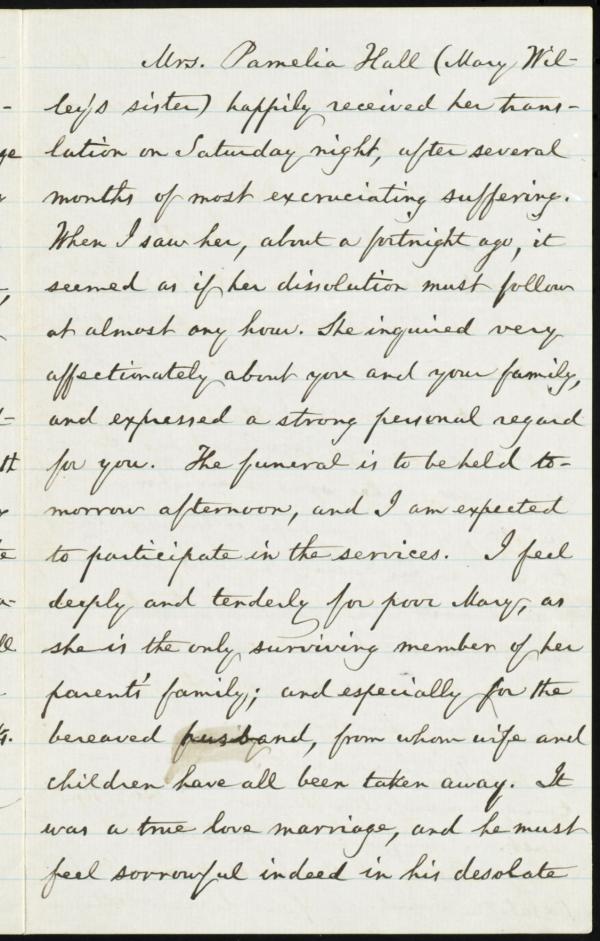 Mrs. Pamelia Hall (Mary Wil-
ley's sister) happily received her trans-
lation on Saturday night, after several
months of most excruciating suffering.
When I saw her, about a fortnight ago, it
seemed as if her dissolution must follow
at almost any hour. She inquired very
affectionately about you and your family,
and expressed a strong personal regard
for you. The funeral is to be held to-
morrow afternoon, and I am expected
to participate in the services. I feel
deeply and tenderly for poor Mary, as
she is the only surviving member of her
parents' family; and especially for the
bereaved husband, from whom wife and
children have all been taken away. It
was a true love marriage, and he must
feel sorrowful indeed in his desolate